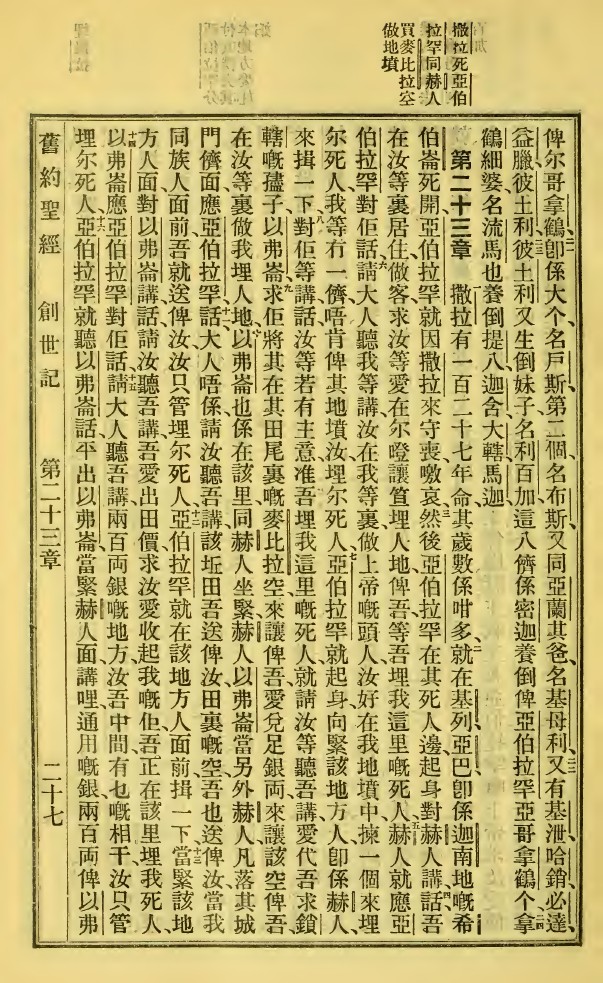 撒拉死亞伯
拉罕同赫人
買麥比拉空
做地墳
俾尔哥拿鶴、卽係大个名戸斯、第二個名布斯、又同亞蘭其爸、名基母利、又有基泄哈銷必達、
益臘彼土利、彼土利又生倒妹子、名利百加、這八儕係密迦養倒俾亞伯拉罕亞哥拿鶴个、拿
鶴細婆名流馬、也養倒提八、迦含、大轄、馬迦
第二十三章 撒拉有一百二十七年命、其歲數係咁多、就在基列亞巴、卽係迦南地嘅希
伯崙死開、亞伯拉罕就因撒拉來守喪噭哀、然後亞伯拉罕在其死人邊起身、對赫人講話、吾
在汝等裏居住做客、求汝等愛在尔嶝讓笪埋人地俾吾、等吾埋我這里嘅死人、赫人就應亞
伯拉罕對佢話、請大人聽我等講、汝在我等裏做上帝嘅頭人、汝好在我地墳中揀一個來埋
尔死人、我等冇一儕唔肯俾其地墳汝埋尔死人、亞伯拉罕就起身向緊該地方人、卽係赫人、
來揖一下、對佢等講話、汝等若有主意准吾埋我這里嘅死人、就請汝等聽吾講、愛代吾求鎖
轄嘅孻子以弗崙、求佢將其在其田尾裏嘅麥比拉空來讓俾吾、愛兌足銀兩來讓該空俾吾、
在汝等裏做我埋人地、以弗崙也係在該里同赫人坐緊、赫人以弗崙當另外赫人、凡落其城
門儕面、應亞伯拉罕話、大人唔係、請汝聽吾講、該坵田吾送俾汝、田裏嘅空吾也送俾汝、當我
同族人面前吾就送俾汝、汝只管埋尔死人、亞伯拉罕就在該地方人面前揖一下、當緊該地
方人面對以弗崙講話、請汝聽吾講、吾愛出田價、求汝愛收起我嘅佢、吾正在該里埋我死人、
以弗崙應亞伯拉罕對佢話、請大人聽吾講、兩百両銀嘅地方、汝吾中間有乜嘅相干、汝只管
埋尔死人、亞伯拉罕就聽以弗崙話、平出以弗崙當緊赫人面講哩通用嘅銀、兩百両俾以弗
舊約聖經 創世記 第二十三章 二十七